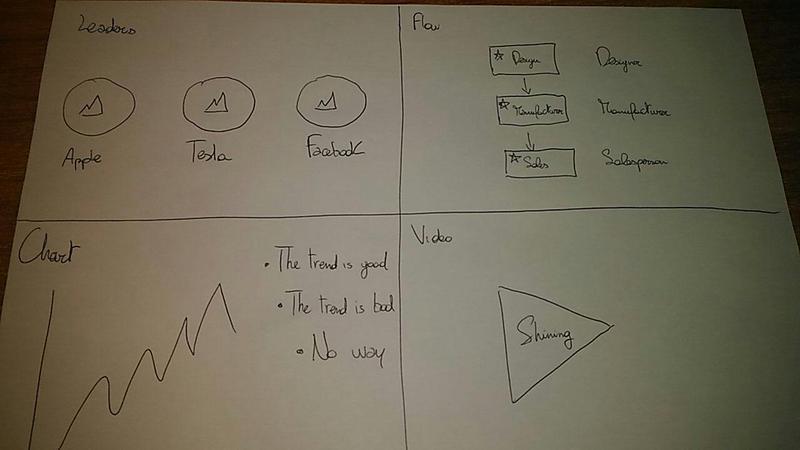 Leaders
Apple
Tesla
Facebook
Flow
Design
Designer
Manufacturer
Manufacturer
Sales
Salesperson
Chart
The trend is good
The trend is bad
No way
Video
Shining